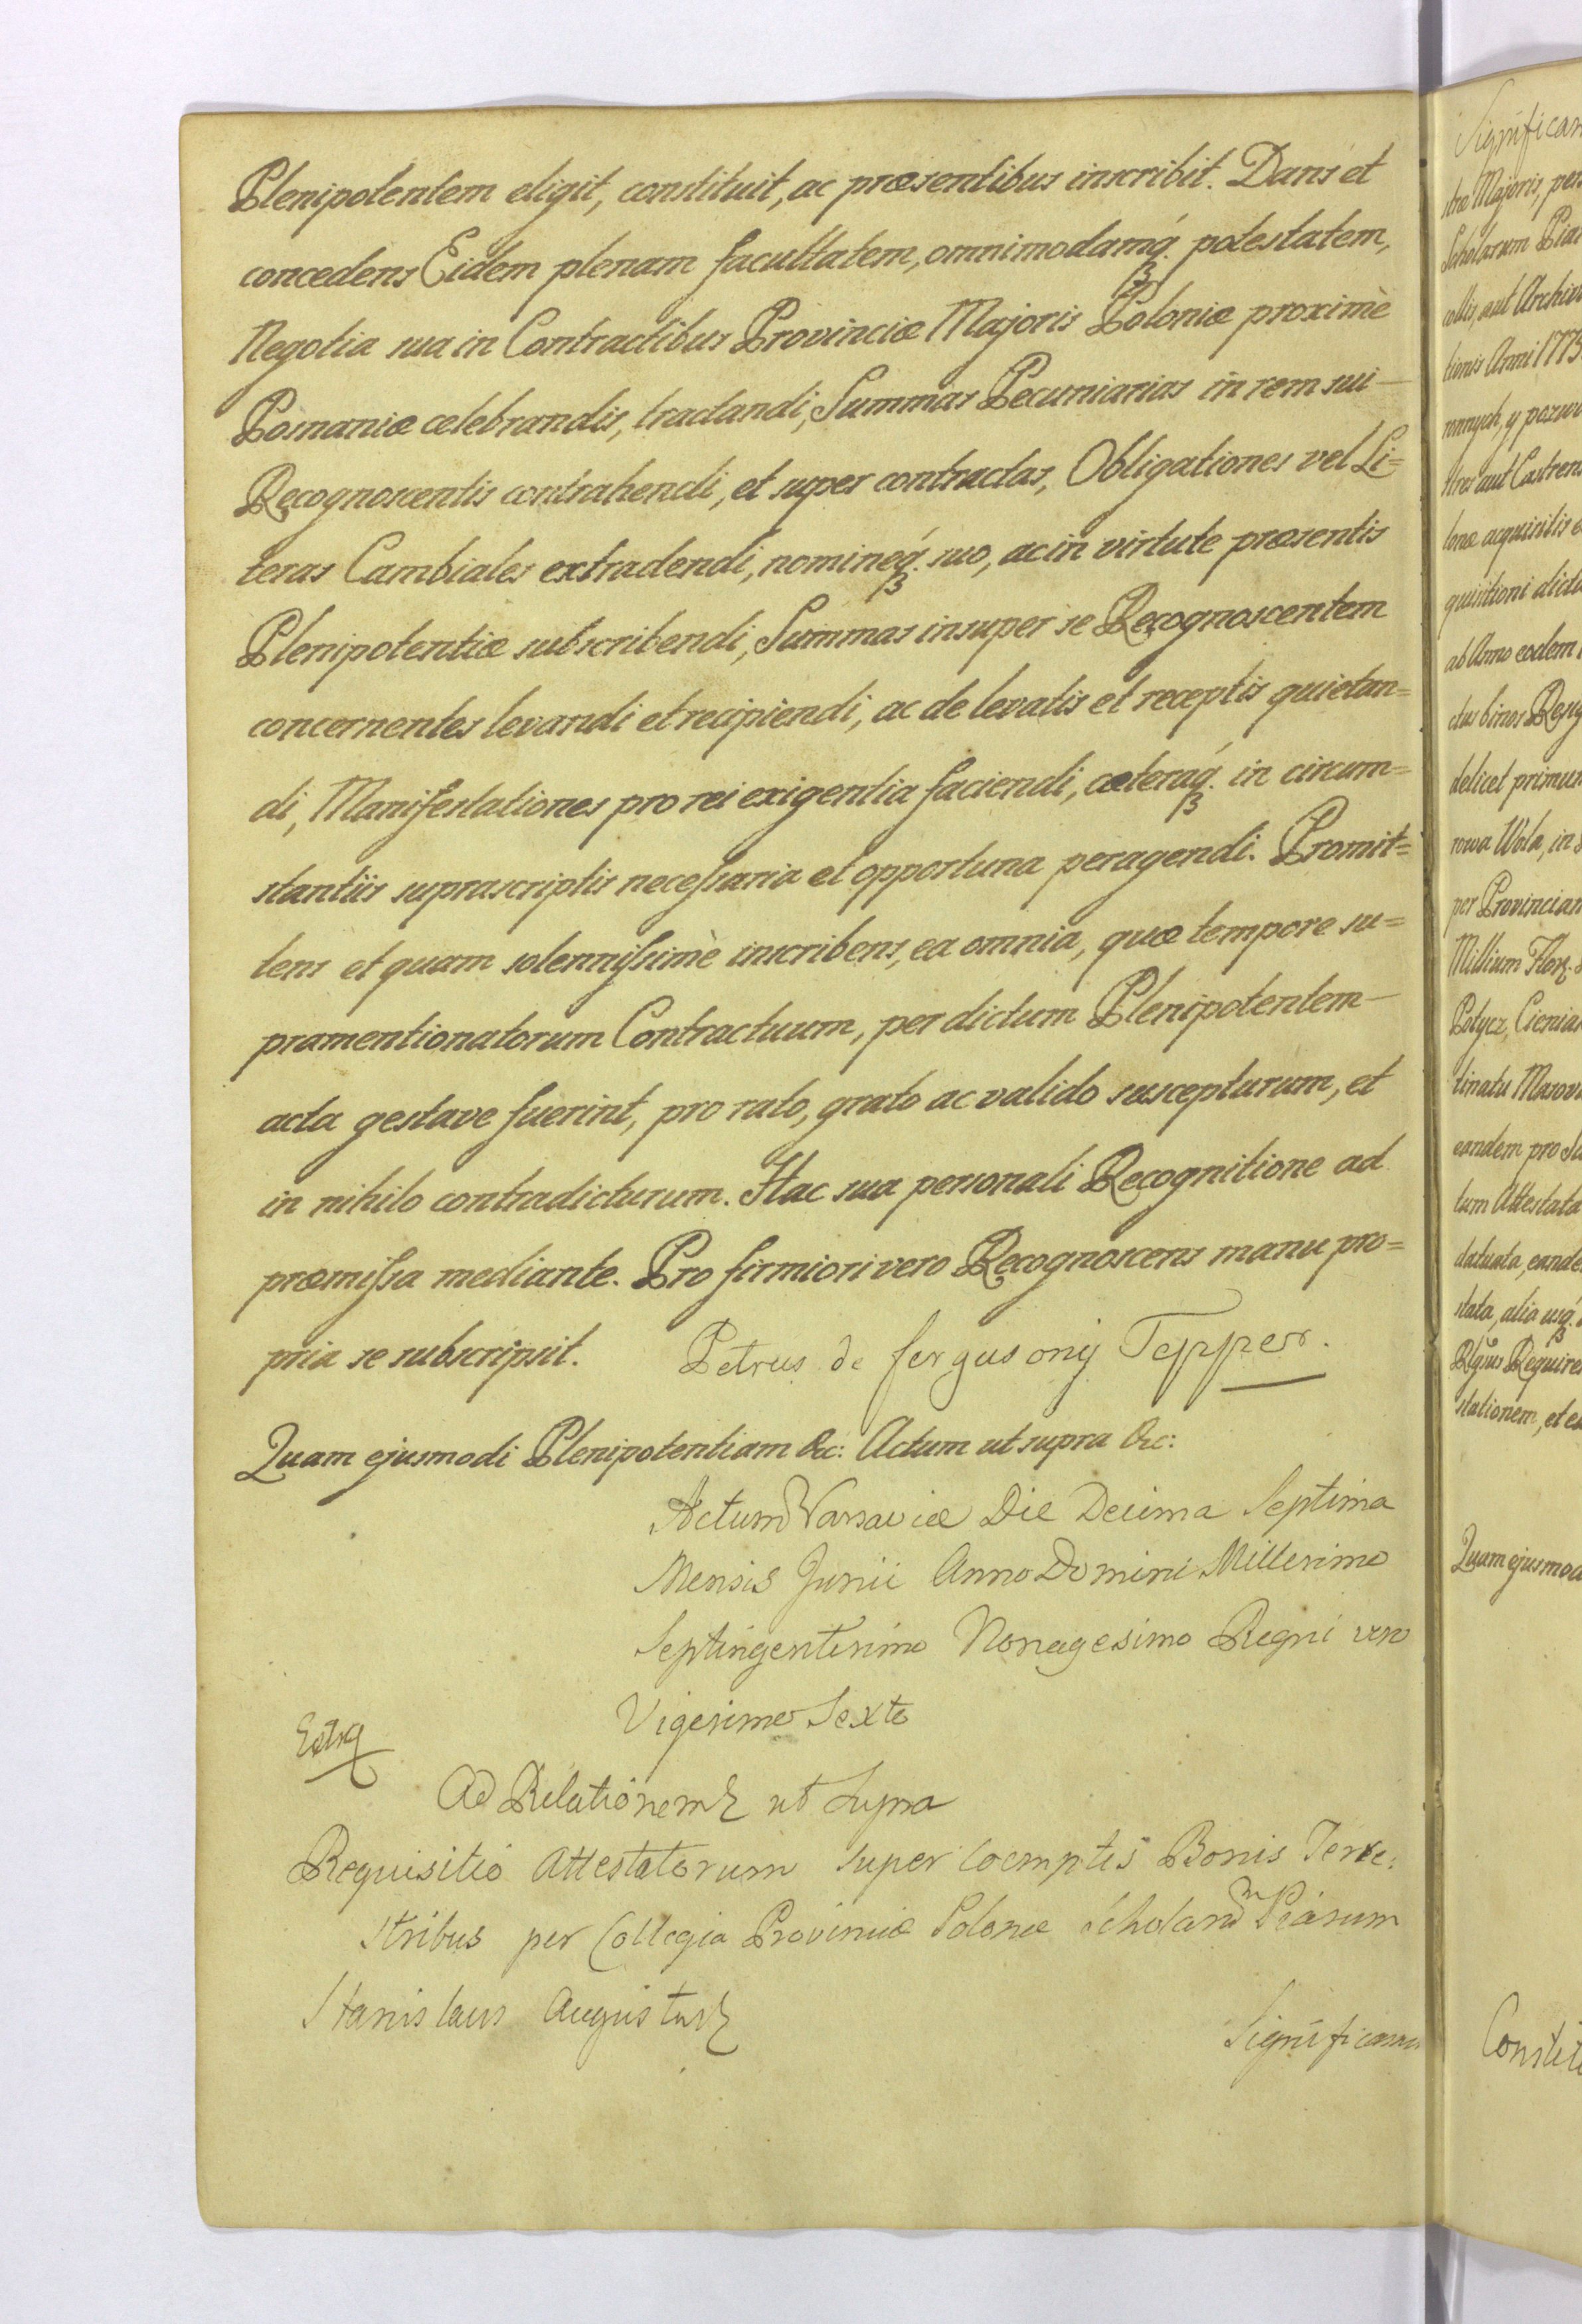 Plenipotentem eligit, constituit, ac præsentibus inscribit. Dans et
concedens Eidem plenam facultatem, omnimodamq́ꝫ potestatem,
Negotia sua in Contractibus Provinciæ Majoris Poloniæ proximè
Posnaniæ celebrandis, tractandi, Summas Pecuniarias in rem sui
Recognoscentis contrahendi, et super contractas, Obligationes vel Li=
teras Cambiales extradendi, nomineq́ꝫ suo, ac in virtute præsentis
Plenipotentiæ subscribendi, Summas insuper se Recognoscentem
concernentes levandi et recipiendi, ac de levatis et receptis quietan=
di, Manifestationes pro rei exigentia faciendi, cæteraq́ꝫ in circum=
stantiis suprascriptis necessaria et opportuna peragendi. Promit=
tens et quam solennissimè inscribens, ea omnia, quæ tempore su=
pramentionatorum Contractuum, per dictum Plenipotentem
acta gestave fuerint, pro rato, grato ac valido suscepturum, et
in nihilo contradicturum. Hac sua personali Recognitione ad
præmissa mediante. Pro firmiori vero Recognoscens manu pro=
pria se subscripsit. Petrus de fergusonij Tepper.
Quam ejusmodi Plenipotentiam &c: Actum ut supra &c:
Actum Varsaviæ Die Decima Septima
Mensis Junii Anno Domini Millesimo
Septingentesimo Nonagesimo Regni vero
Vigesimo Sexto
Ad Relationem ut Supra
Requisitio Attestatorum super Coemptis Bonis Terre:
stribus per Collegia Provinciæ Polonæ Scholarum Piarum
Stanislaus Augustus
Significamu
Significam
stræ Majoris, per
Scholarum Piar
tionis Anni 1773
tres aut Castren
lonæ acquisitis e
quisitioni dicta
ab Anno eodem
delicet primum
rowa Wola, in
per Provinciam
Millium Flor.
tinatu Masov
eandem pro Su
tum Attestata
datuata, eande
stata, alia usq́ꝫ
stationem, et ea
Quam ejusmod
Constit